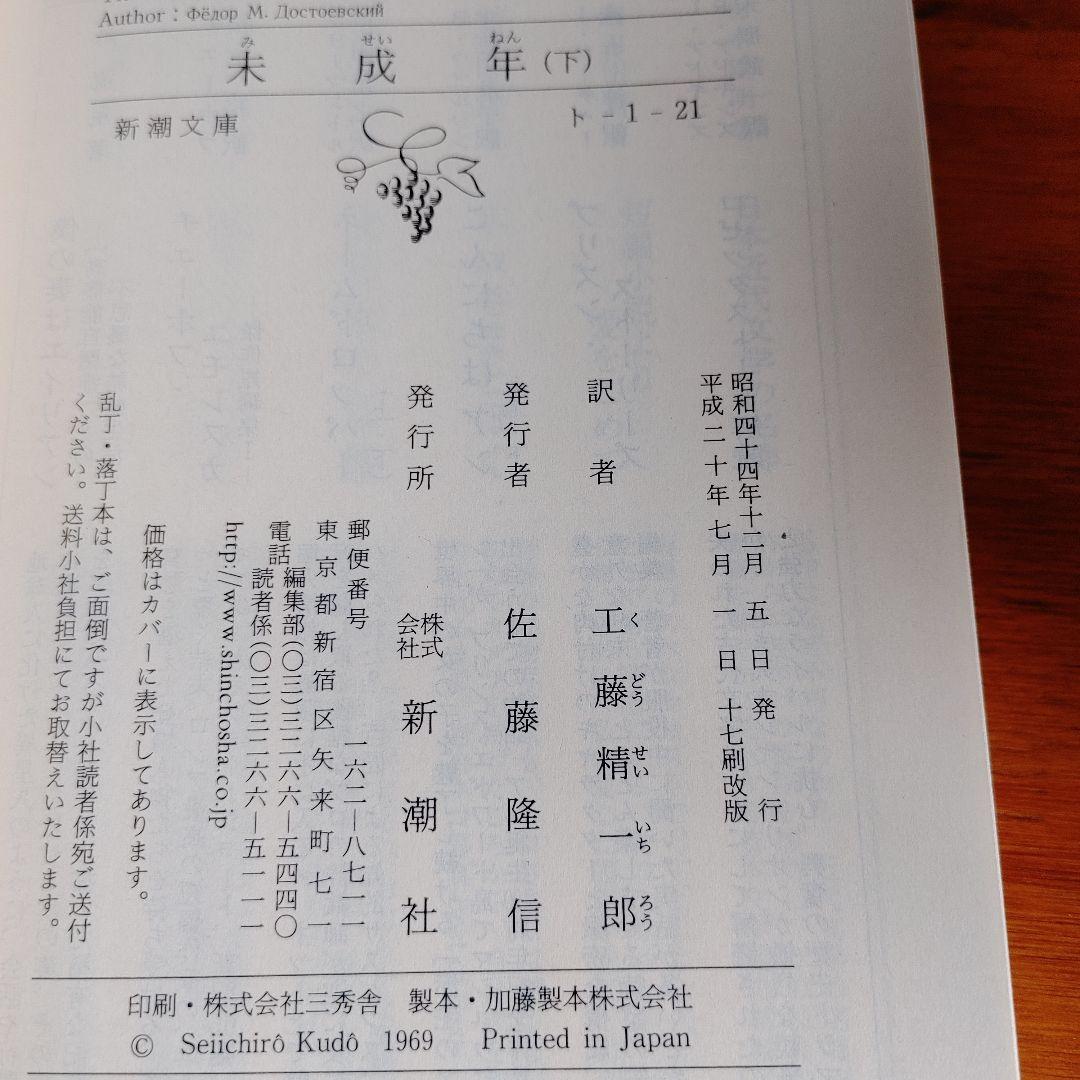 Author : Фёдор М. Достоевский
未成年(下)
みせいねん
新潮文庫
ト-1-21
昭和四十四年十二月五日発行
平成二十年七月一日十七刷改版
訳者 工藤精一郎
くどうせいいちろう
発行者 佐藤隆信
発行所 株式会社 新潮社
郵便番号 一六二―八七一一
東京都新宿区矢来町七一
電話 編集部(〇三)三二六六―五四四〇
読者係(〇三)三二六六―五一一一
http://www.shinchosha.co.jp
価格はカバーに表示してあります。
乱丁・落丁本は、ご面倒ですが小社読者係宛ご送付
ください。送料小社負担にてお取替えいたします。
印刷・株式会社三秀舎 製本・加藤製本株式会社
© Seiichirô Kudô 1969 Printed in Japan